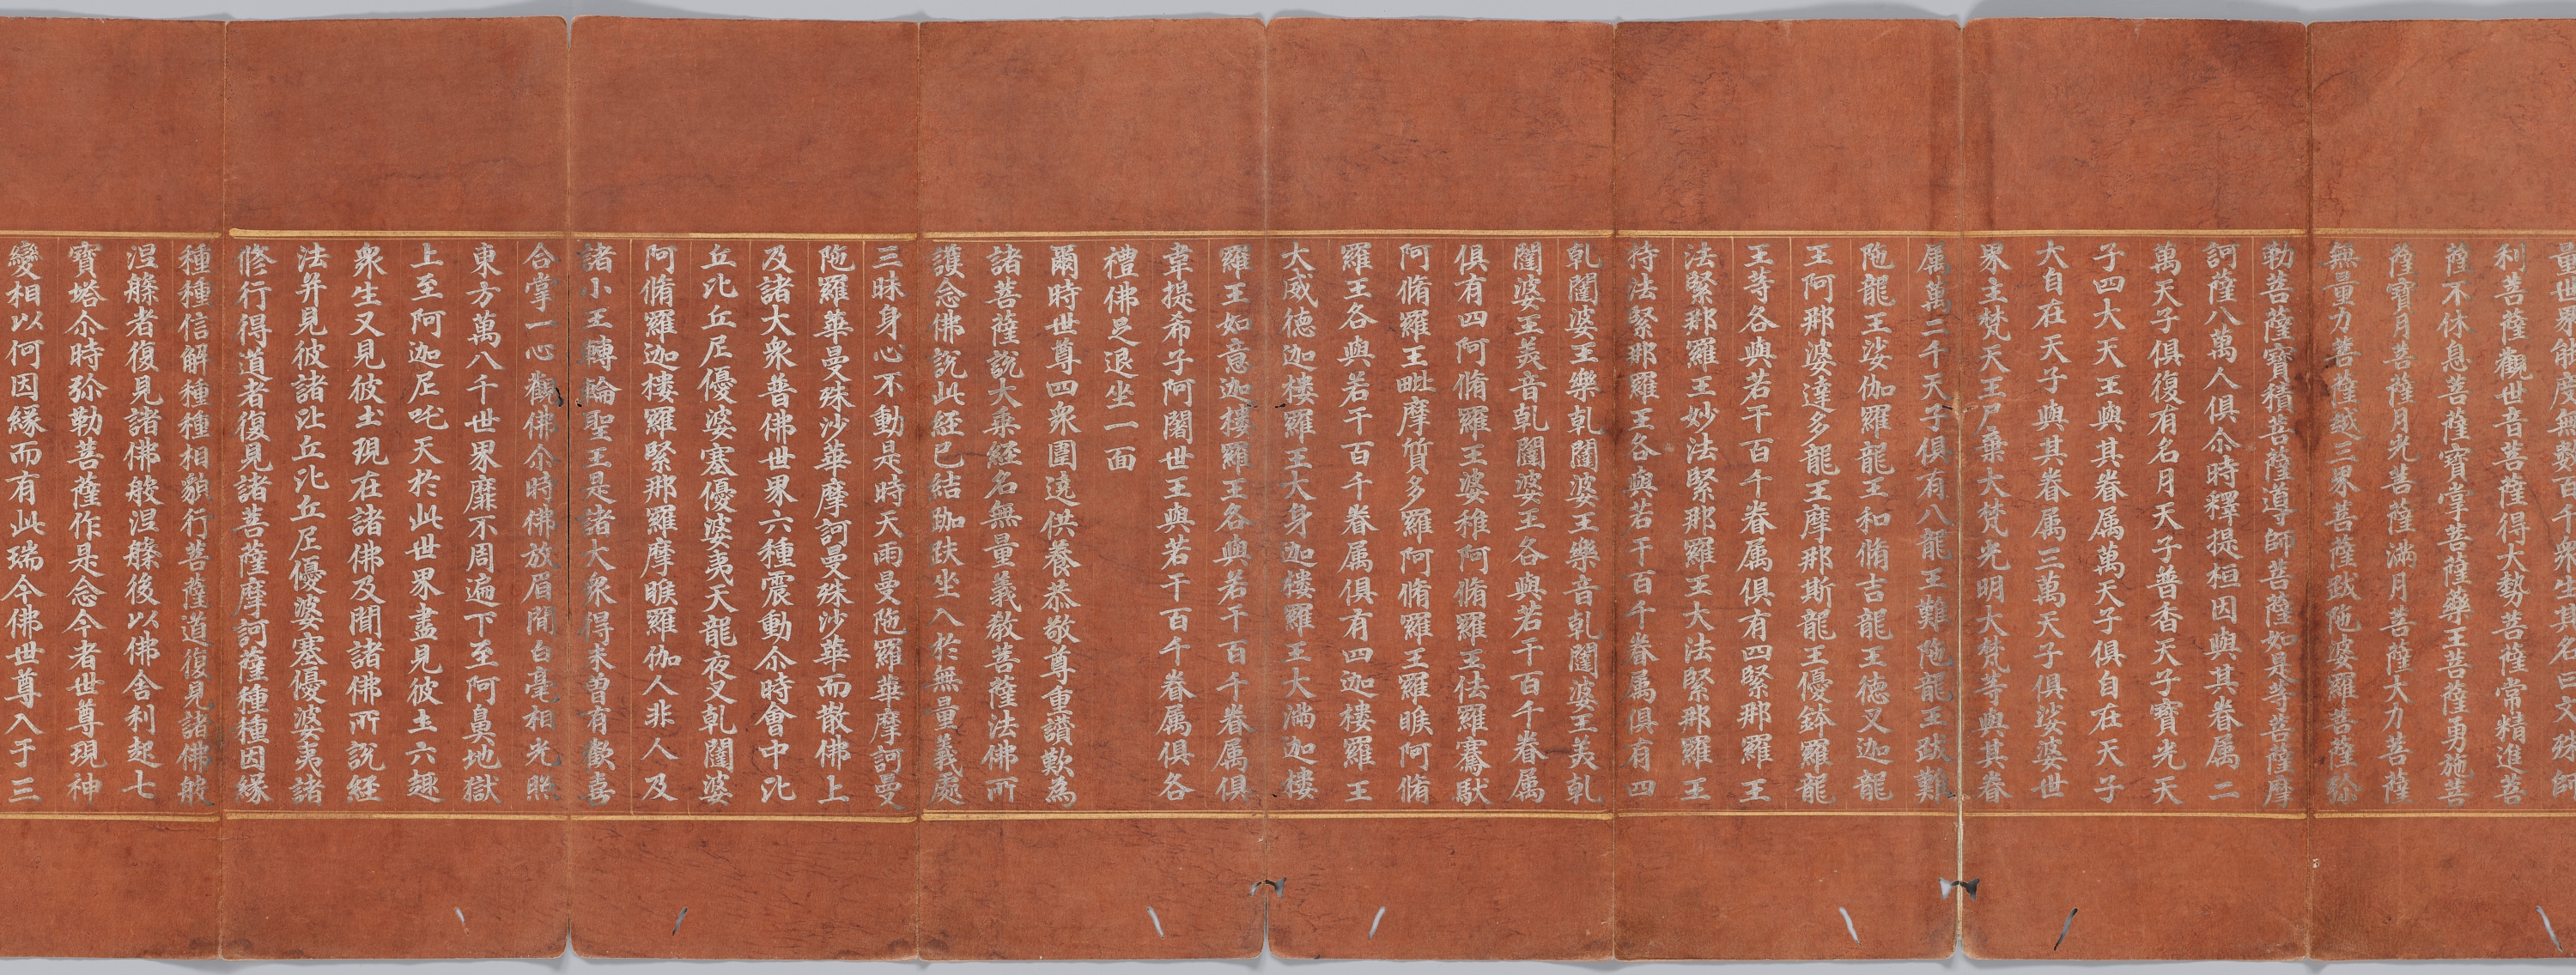 量世界能度無數百千衆生其名曰文殊師
利菩薩觀世音菩薩得大勢菩薩常精進菩
薩不休息菩薩寶掌菩薩藥王菩薩勇施菩
薩寶月菩薩月光菩薩滿月菩薩大力菩薩
無量力菩薩越三界菩薩跋陁婆羅菩薩弥
勒菩薩寶積菩薩導師菩薩如是等菩薩摩
訶薩八萬人俱尒時釋提桓因與其眷属二
萬天子俱復有名月天子普香天子寶光天
子四大天王與其眷属萬天子俱自在天子
大自在天子與其眷属三萬天子俱娑婆世
界主梵天王尸棄大梵光明大梵等與其眷
属萬二千天子俱有八龍王難陁龍王跋難
陁龍王娑伽羅龍王和脩吉龍王徳叉迦龍
王阿那婆達多龍王摩那斯龍王優鉢羅龍
王等各與若干百千眷属俱有四緊那羅王
法緊那羅王妙法緊那羅王大法緊那羅王
持法緊那羅王各與若干百千眷属俱有四
乹闥婆王樂乹闥婆王樂音乹闥婆王美乹
闥婆王美音乹闥婆王各與若干百千眷属
俱有四阿脩羅王婆稚阿脩羅王佉羅騫馱
阿脩羅王毗摩質多羅阿脩羅王羅睺阿脩
羅王各與若干百千眷属俱有四迦樓羅王
大威徳迦樓羅王大身迦樓羅王大滿迦樓
羅王如意迦樓羅王各與若干百千眷属俱
韋提希子阿闍世王與若干百千眷属俱各
禮佛足退坐一面
爾時世尊四衆圍遶供養恭敬尊重讃歎為
諸菩薩說大乘経名無量義教菩薩法佛所
護念佛說此経已結跏趺坐入於無量義處
三昧身心不動是時天雨曼陁羅華摩訶曼
陁羅華曼殊沙華摩訶曼殊沙華而散佛上
及諸大衆普佛世界六種震動尒時會中比
丘比丘尼優婆塞優婆夷天龍夜叉乹闥婆
阿脩羅迦樓羅緊那羅摩睺羅伽人非人及
諸小王轉輪聖王是諸大衆得未曽有歡喜
合掌一心觀佛尒時佛放眉間白毫相光照
東方萬八千世界靡不周遍下至阿鼻地獄
上至阿迦尼吒天於此世界盡見彼土六趣
衆生又見彼土現在諸佛及聞諸佛所說経
法并見彼諸比丘比丘尼優婆塞優婆夷諸
修行得道者復見諸菩薩摩訶薩種種因緣
種種信解種種相貌行菩薩道復見諸佛般
涅槃者復見諸佛般涅槃後以佛舍利起七
寶塔尒時弥勒菩薩作是念今者世尊現神
變相以何因緣而有此瑞今佛世尊入于三